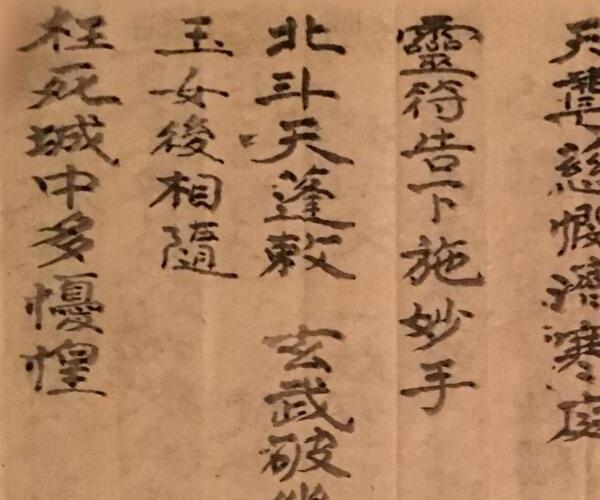 天尊慈濟寒庭
靈符告下施妙手
北斗天蓬敕 玄武破
玉女後相隨
枉死城中多懮惶